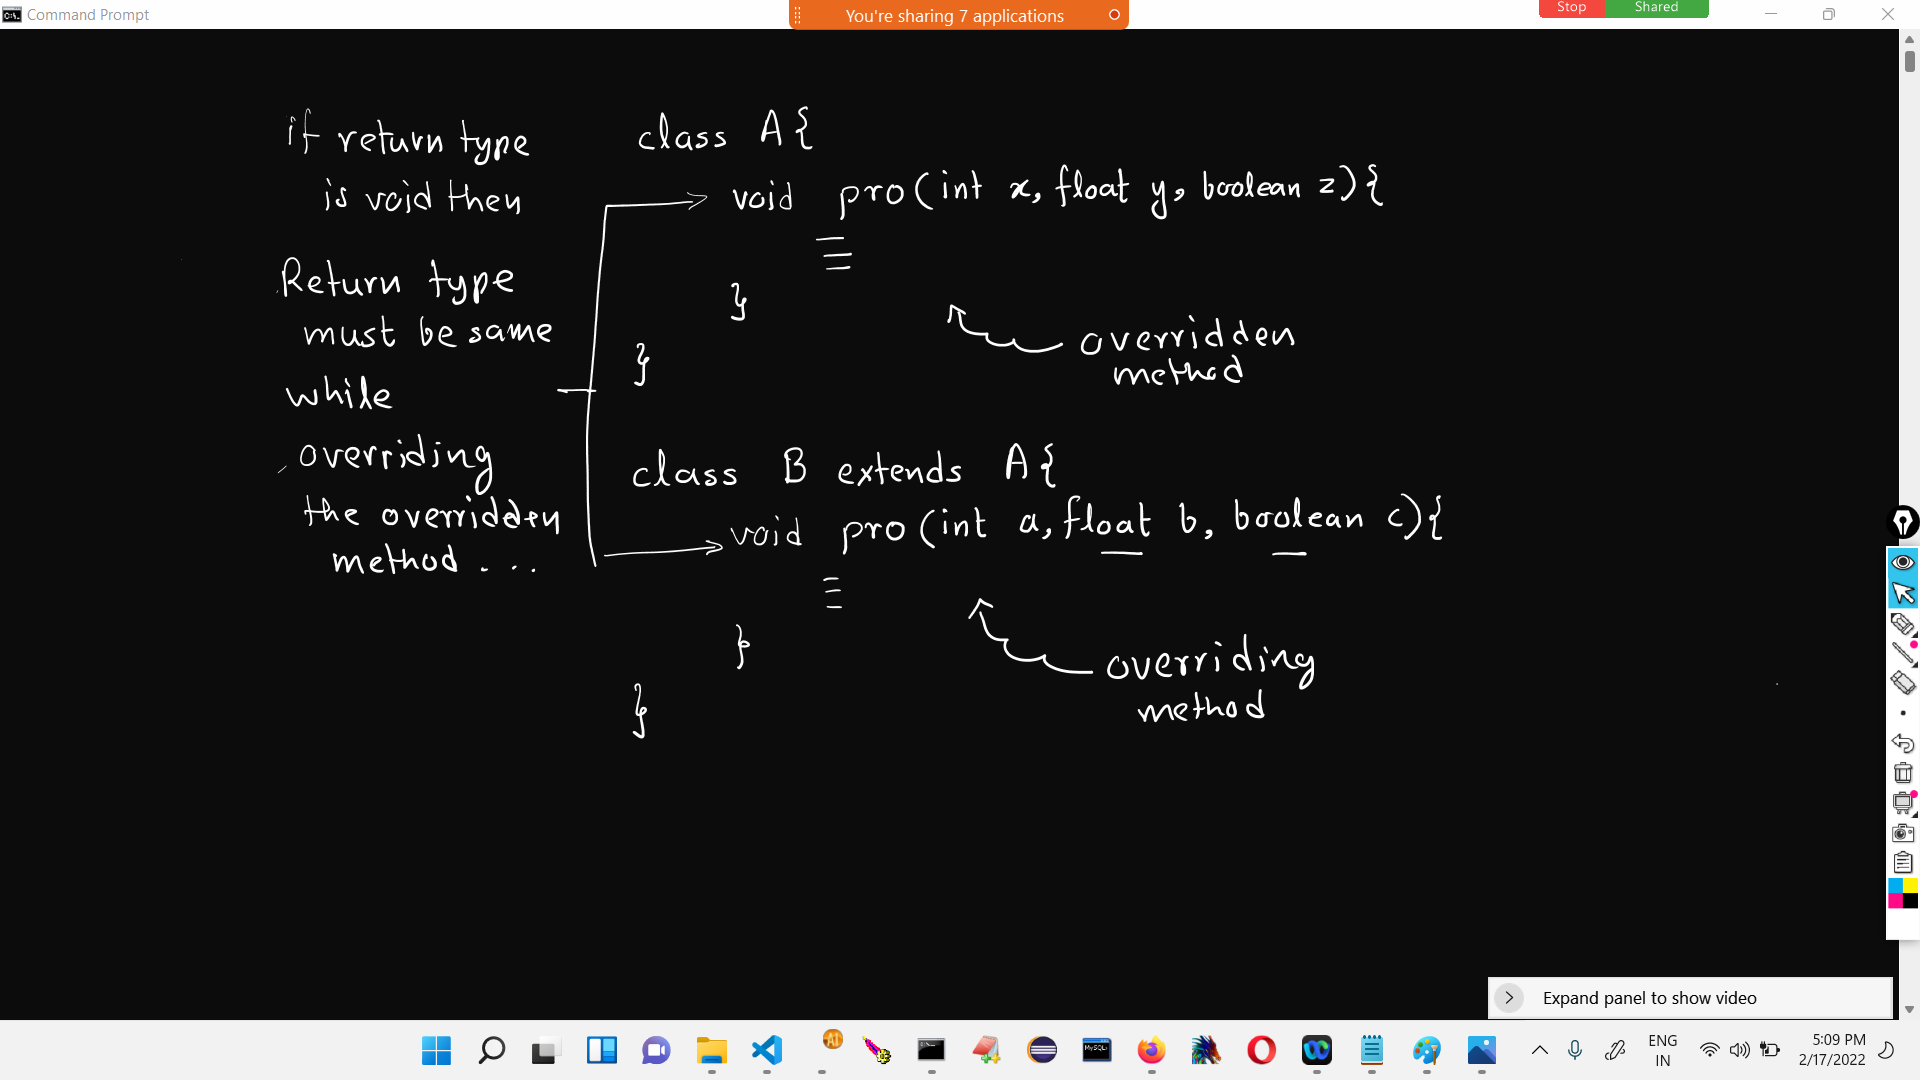 Command Prompt
You're sharing 7 applications
Stop
Shared
if return type
is void then
Return type
must be same
while
overriding
the overridden
method . . .
class A{
void pro(int x, float y, boolean z){
}
}
overridden
method
class B extends A{
void pro(int a, float b, boolean c){
}
}
overriding
method
Expand panel to show video
ENG
IN
5:09 PM
2/17/2022